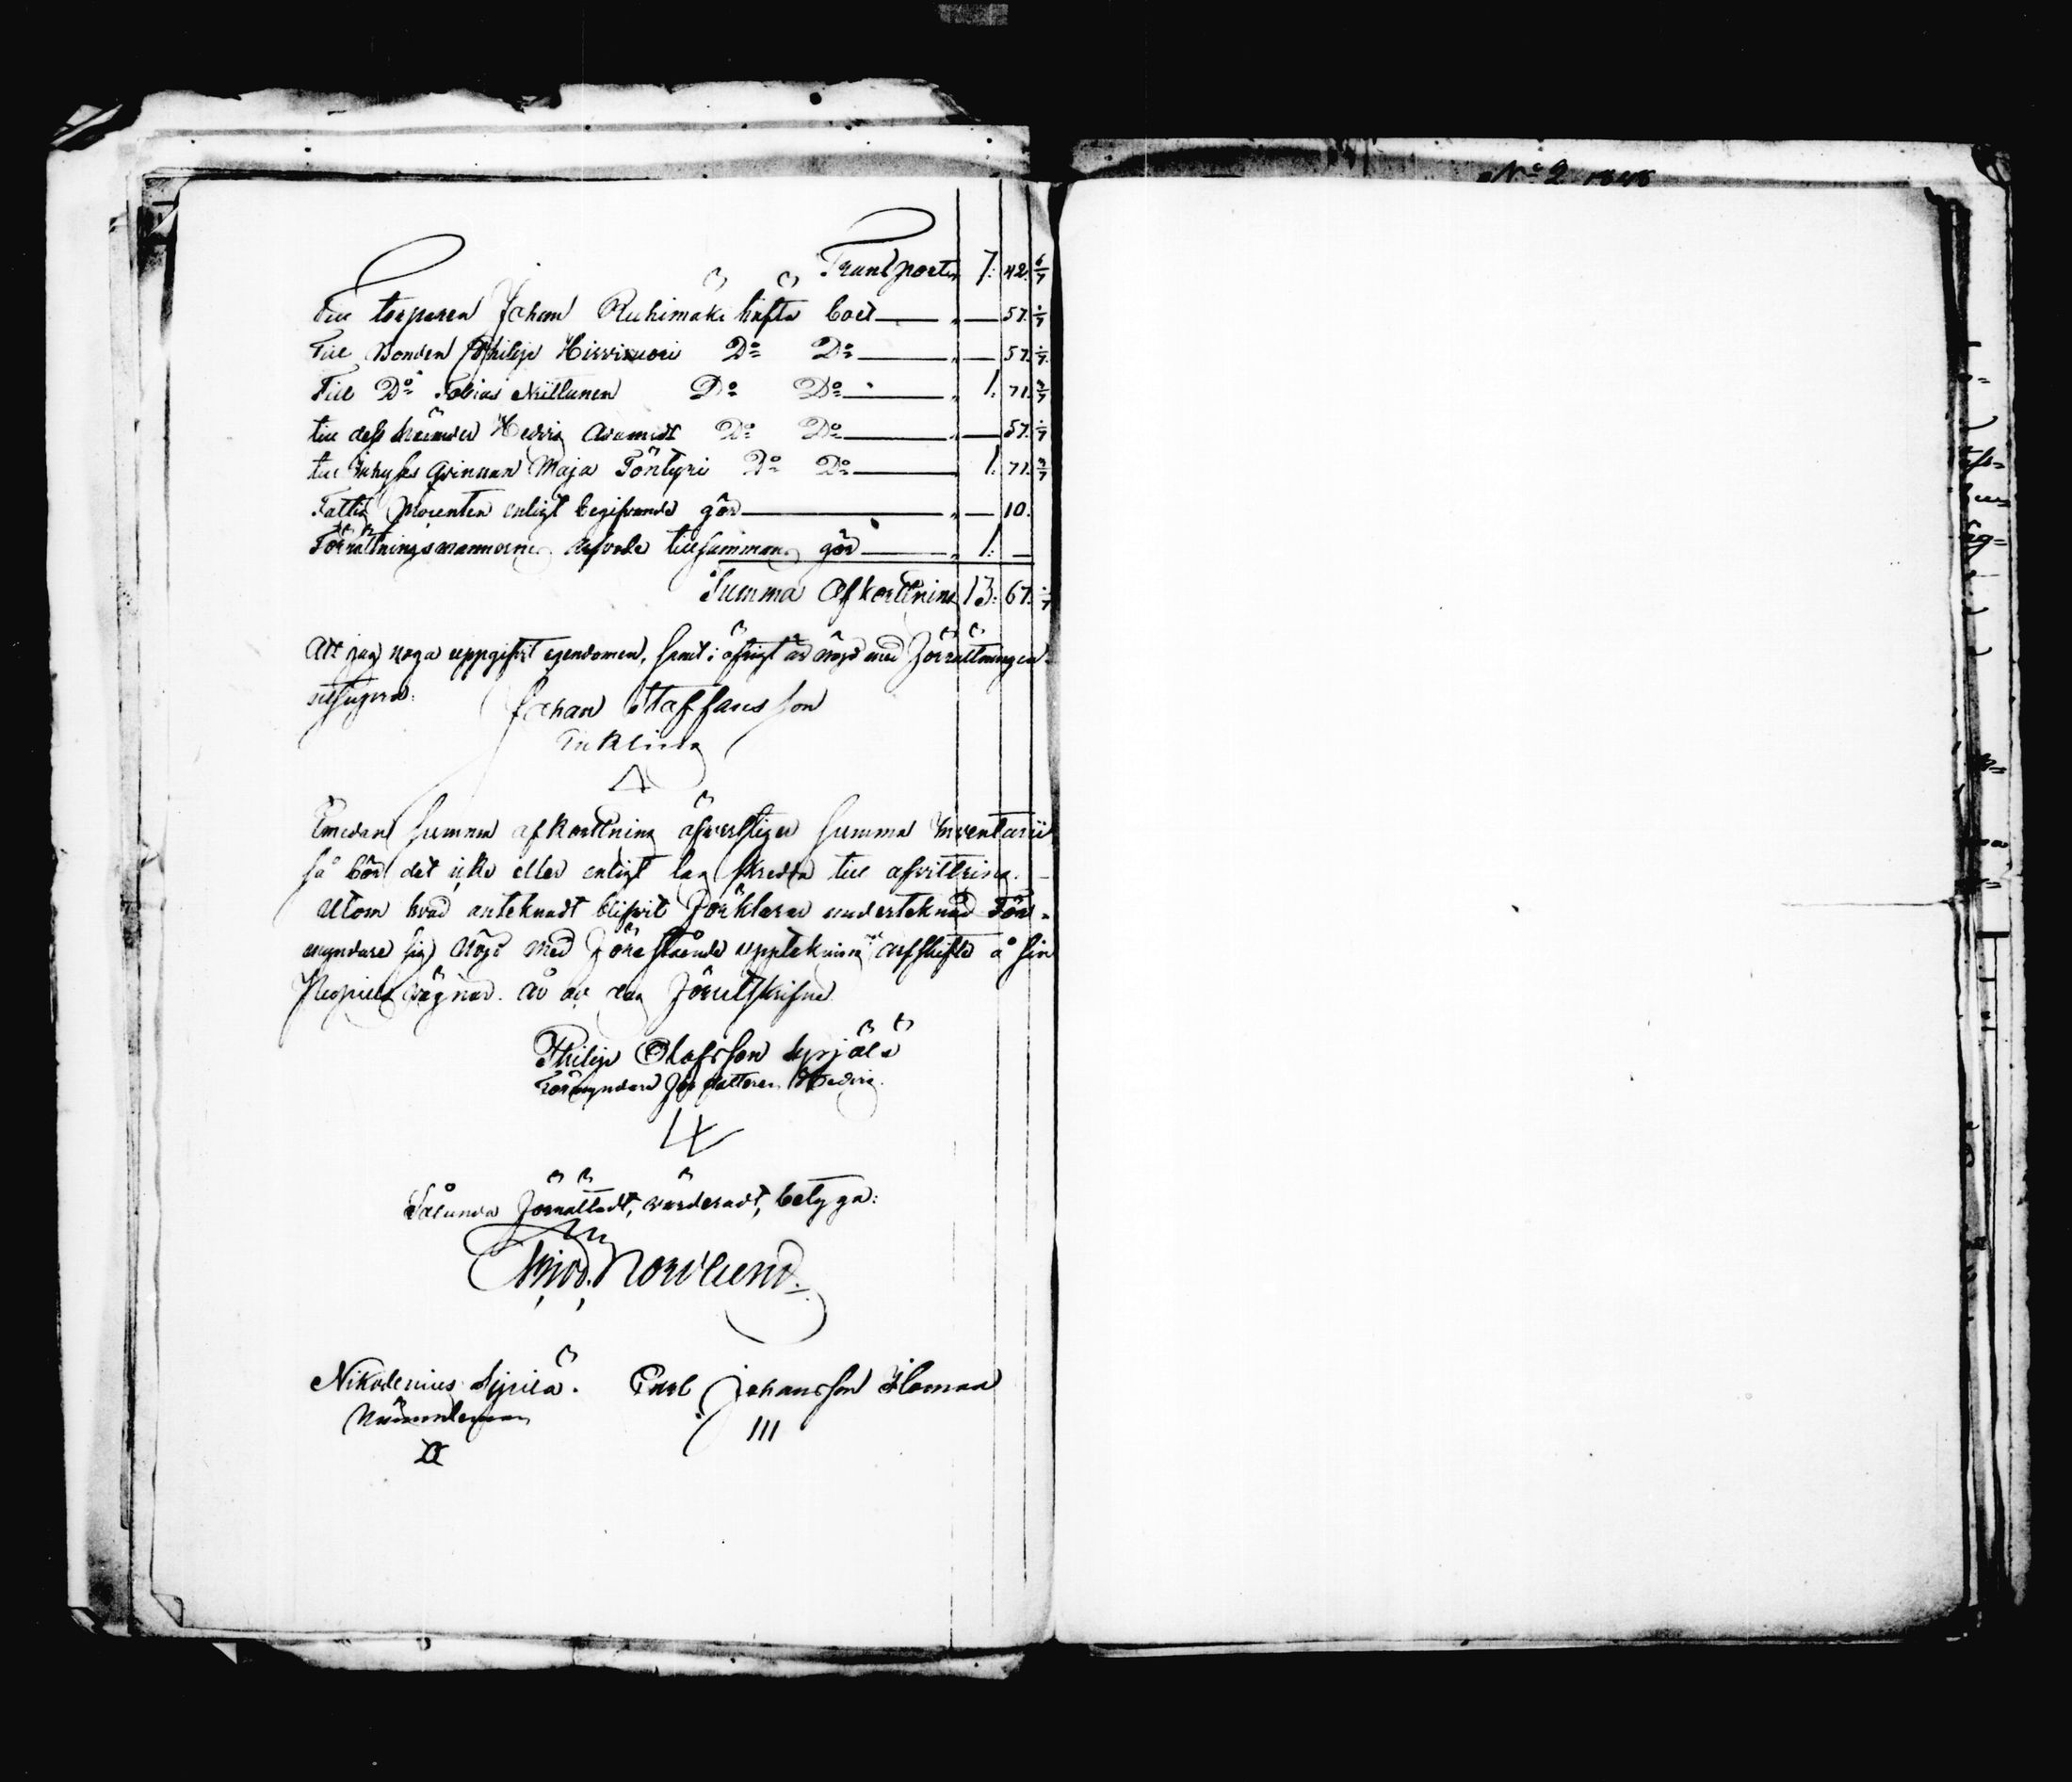 Transporter 7. 42. 6/7
Till torparen Johan Ruhimäki häfta boet — 57. 1/7
Till Bonden Philip Hirvivuori Do Do — 57. 1/7
Till Do Tobias Niittunen Do Do 1. 71. 3/7
till dess Hedvig Do Do — 57. 1/7
till Inhyses qvinnan Maja Töntyri Do Do 1. 71. 3/7
Fattig Procenten enligt begifvande gör — 10.
Förrättningsmännerne arfvode tillsammans gör 1. —
Summa Afkortning 13. 67. 1/7
Att jag noga uppgifvit egendomen, samt i öfrigt är nöjd med Förrättningen
Johan Staffansson
Enkling
Emedan Summa afkortning öfverstiger Summa Inventarii
så bör det icke eller enligt lag skredo till afvittring.
Utom hvad anteknadt blifvit Förklarar undertecknad För-
myndare sig nöjd med Förestående uppteckning arfskifte å sin
vägnar. År och dag Förutskrifne
Philip Olofsson Syrjälä
Förmyndare för dottren Hedvig.
Sålunda Förrättadt, värderadt, betyga:
Nordlund.
Nikodemus Syrjälä. Carl Johansson Homan
Nämndeman
III
No 2 1848